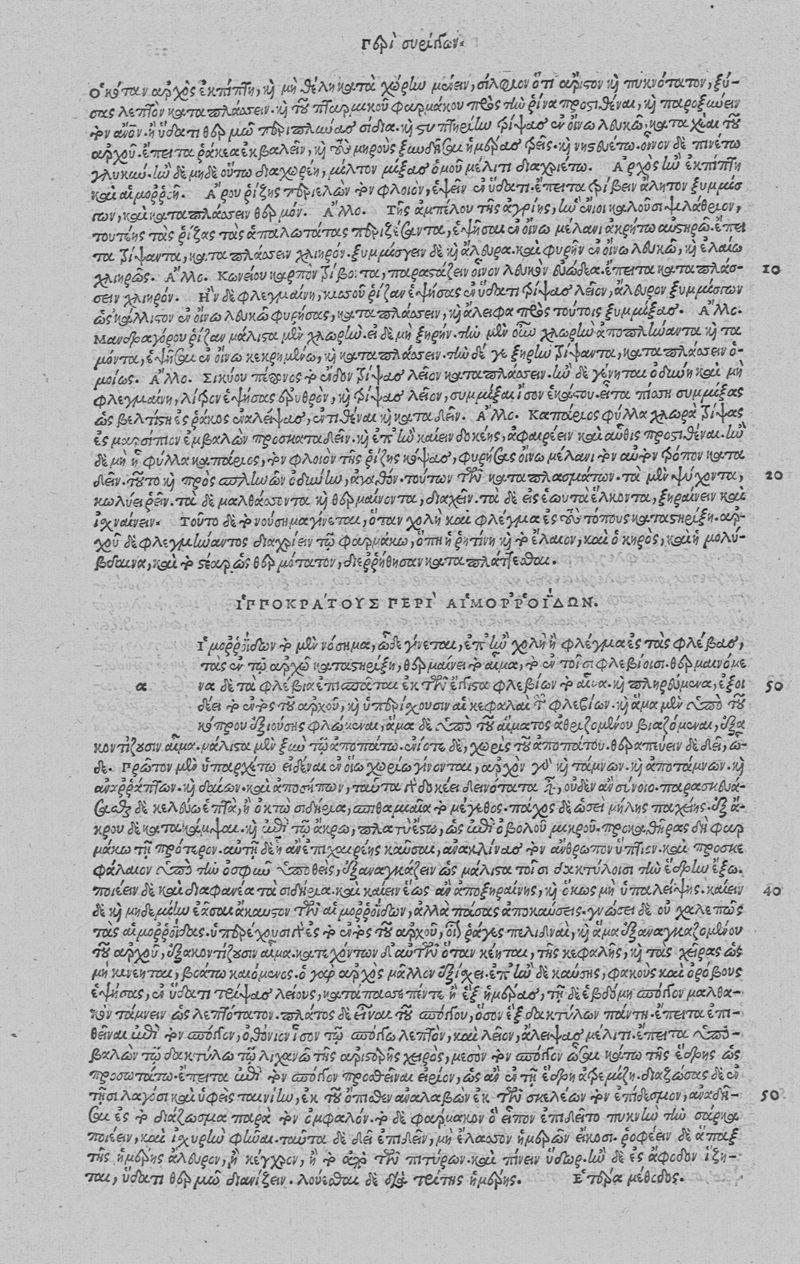 Περὶ συρίγγων.
Ὁκόταν ἀρχὸς ἐκπίπτῃ, καὶ μὴ θέλῃ κατὰ χώρην μένειν, σίλφιον ὅτι ἄριστον καὶ πυκνότατον, ξύ-
σας λεπτὸν καταπλάσσειν. καὶ τοῦ πταρμικοῦ φαρμάκου πρὸς τὴν ῥίνα προστιθέναι, καὶ παροξύνειν
τὸν ἄνθρωπον. ἢ ὕδατι θερμῷ περιπλύνας σίδια. καὶ στυπτηρίην τρίψας ἐν οἴνῳ λευκῷ, καταχέαι τοῦ
ἀρχοῦ. ἔπειτα ῥάκεα ἐκβαλεῖν, καὶ τοὺς μηροὺς ξυνδῆσαι ἡμέρας τρεῖς. καὶ νηστευέτω. οἶνον δὲ πινέτω
γλυκύν. ἢν δὲ μηδὲ οὕτω διαχωρέῃ, μίλτον μίξας ὁμοῦ μέλιτι διαχριέτω. Ἀρχὸς ἢν ἐκπίπτῃ
καὶ αἱμορροῇ. Ἄρου ῥίζης περιελὼν τὸν φλοιὸν, ἕψειν ἐν ὕδατι. ἔπειτα τρίβειν ἄλητον ξυμμίσ
γων, καὶ καταπλάσσειν θερμόν. Ἄλλο. Τῆς ἀμπέλου τῆς ἀγρίης, ἣν ἔνιοι καλοῦσι ψιλάθριον,
τουτέης τὰς ῥίζας τὰς ἁπαλωτάτας περιξέσαντα, ἑψῆσαι ἐν οἴνῳ μέλανι ἀκρήτῳ αὐστηρῷ. ἔπει
τα τρίψαντα, καταπλάσσειν χλιηρόν. ξυμμίσγειν δὲ καὶ ἄλευρα. καὶ φυρῆν ἐν οἴνῳ λευκῷ, καὶ ἐλαίῳ
χλιηρῶς. Ἄλλο. Κωνείου καρπὸν τρίβοντα, παραστάζειν οἶνον λευκὸν εὐώδεα. ἔπειτα καταπλάσ- 10
σειν χλιηρόν. Ἢν δὲ φλεγμαίνῃ, κισσοῦ ῥίζαν ἑψήσας ἐν ὕδατι τρίψας λεῖον, ἄλευρον ξυμμίσγων
ὡς κάλλιστον ἐν οἴνῳ λευκῷ φυρήσας, καταπλάσσειν, καὶ ἄλειφα πρὸς τούτοις ξυμμίξας. Ἄλλο.
Μανδραγόρου ῥίζαν μάλιστα μὲν χλωρήν. εἰ δὲ μὴ ξηρήν. τὴν μὲν οὖν χλωρὴν ἀποπλύναντα καὶ τα
μόντα, ἑψῆσαι ἐν οἴνῳ κεκρημένῳ, καὶ καταπλάσσειν. τὴν δέ γε ξηρὴν τρίψαντα, καταπλάσσειν ὁ-
μοίως. Ἄλλο. Σικύου πέπονος τὸ ἔνδον τρίψας λεῖον καταπλάσσειν. ἢν δὲ γένηται ὀδύνη καὶ μὴ
φλεγμαίνῃ, λίτρον ἑψήσας ἐρυθρὸν, καὶ τρίψας λεῖον, συμμίξαι ἴσον ἑκάστου. εἶτα πίσσῃ συμμίξας
ὡς βελτίστῃ ἐς ῥάκος ἐναλείψας, ἐντιθέναι καὶ καταδεῖν. Ἄλλο. Καππάριος φύλλα χλωρὰ τρίψας
ἐς μαρσίπιον ἐμβαλὼν προσκαταδεῖν. καὶ ἐπὴν καίειν δοκέῃς, ἀφαιρέειν καὶ αὖθις προστιθέναι. ἢν
δὲ μὴ ᾖ φύλλα καππάριος, τὸν φλοιὸν τῆς ῥίζης κόψας, φυρῆσας οἴνῳ μέλανι τὸν αὐτὸν τρόπον κατα
δεῖν. τοῦτο καὶ πρὸς σπληνῶν ὀδύνην, ἀγαθόν. τούτων τῶν καταπλασμάτων. τὰ μὲν ψύχοντα, 20
κωλύει ῥεῖν. τὰ δὲ μαλθάσσοντα καὶ θερμαίνοντα, διαχεῖν. τὰ δὲ εἰς ἑωυτὰ ἕλκοντα, ξηραίνειν καὶ
ἰσχναίνειν. Τοῦτο δὲ τὸ νούσημα γίνεται, ὅταν χολὴ καὶ φλέγμα ἐς τοὺς τόπους καταστηρίξῃ. ἀρ-
χοῦ δὲ φλεγμήναντος διαχρίειν τῷ φαρμάκῳ, ὅπῃ ἡ ῥητίνη καὶ τὸ ἔλαιον, καὶ ὁ κηρὸς, καὶ ἡ μολύ-
βδαινα, καὶ τὸ στέαρ ὡς θερμότατον, διερρήθησαν καταπλάττεσθαι.
ἹΠΠΟΚΡΑΤΟΥΣ ΠΕΡΙ ΑἹΜΟΡΡΟΪΔΩΝ.
Ἱμορροΐδων τὸ μὲν νόσημα, ὧδε γίνεται, ἐπὴν χολὴ ἢ φλέγμα ἐς τὰς φλέβας,
τὰς ἐν τῷ ἀρχῷ καταστηρίξῃ, θερμαίνει τὸ αἷμα, τὸ ἐν τοῖσι φλεβίοισι. θερμαινόμε
α να δὲ τὰ φλέβια ἐπισπᾶται ἐκ τῶν ἔγγιστα φλεβίων τὸ αἷμα. καὶ πληρεύμενα, ἐξοι 50
δέει τὸ ἐντὸς τοῦ ἀρχοῦ, καὶ ὑπερίσχουσιν αἱ κεφαλαὶ τῶν φλεβίων. καὶ ἅμα μὲν ὑπὸ τοῦ
κόπρου ἐξιούσης φλώμεναι, ἅμα δὲ ὑπὸ τοῦ αἵματος ἀθροιζομένου βιαζόμεναι, ἐξα
κοντίζουσιν αἷμα. μάλιστα μὲν ξὺν τῷ ἀποπάτῳ. ἐνίοτε δὲ, χωρὶς τοῦ ἀποπάτου. θεραπεύειν δὲ δεῖ, ὧ-
δε. Πρῶτον μὲν ὑπαρχέτω εἰδέναι ἐν οἵῳ χωρίῳ γίνονται, ἀρχὸν γὰρ καὶ τάμνων. καὶ ἀποτάμνων. καὶ
ἀναρράπτων. καὶ δαίων. καὶ ἀποσήπων, ταῦτα γὰρ δοκέει δεινότατα εἶναι, οὐδὲν ἂν σίνοιο. παρασκευά-
σασθαι δὲ κελεύω ἑπτὰ, ἢ ὀκτὼ σιδήρια, σπιθαμιαῖα τὸ μέγεθος. πάχος δὲ ὡσεὶ μήλης παχείης. ἐξ ἄ-
κρου δὲ κατακάμψαι. καὶ ἐπὶ τῷ ἄκρῳ, πλατὺ ἔστω, ὡς ἐπὶ ὀβολοῦ μικροῦ. προκαθήρας δὴ φαρ
μάκῳ τῇ πρότερον. αὐτῇ δὲ ᾗ ἂν ἐπιχειρέῃς καῦσαι, ἀνακλίνας τὸν ἄνθρωπον ὕπτιον. καὶ προσκε
φάλαιον ὑπὸ τὴν ὀσφῦν ὑποθεὶς, ἐξαναγκάζειν ὡς μάλιστα τοῖσι δακτύλοισι τὴν ἕδρην ἔξω.
ποιέειν δὲ καὶ διαφανέα τὰ σιδήρια. καὶ καίειν ἕως ἂν ἀποξηραίνῃς, καὶ ὅκως μὴ ὑπαλείψῃς. καίειν 40
δὲ καὶ μηδεμίην ἐᾶσαι ἄκαυστον τῶν αἱμορροΐδων, ἀλλὰ πάσας ἀποκαύσεις. γνώσει δὲ οὐ χαλεπῶς
τὰς αἱμορροΐδας. ὑπερέχουσι γὰρ ἐς τὸ ἐντὸς τοῦ ἀρχοῦ, οἷον ῥᾶγες πελιδναὶ, καὶ ἅμα ἐξαναγκαζομένου
τοῦ ἀρχοῦ, ἐξακοντίζουσιν αἷμα. κατεχόντων δὲ αὐτὸν ὅταν καίηται, τῆς κεφαλῆς, καὶ τὰς χεῖρας ὡς
μὴ κινέηται, βοάτω καιόμενος. ὁ γὰρ ἀρχὸς μᾶλλον ἐξίσχει. ἐπὴν δὲ καύσῃς, φακοὺς καὶ ὀρόβους
ἑψήσας, ἐν ὕδατι τρίψας λείους, κατάπλασσε πέντε ἢ ἓξ ἡμέρας, τῇ δὲ ἑβδόμῃ σπόγγον μαλθα-
κὸν τάμνειν ὡς λεπτότατον. πλάτος δὲ εἶναι τοῦ σπόγγου, ὅσον ἓξ δακτύλων πάντῃ. ἔπειτα ἐπι-
θεῖναι ἐπὶ τὸν σπόγγον, ὀθόνιον ἴσον τῷ σπόγγῳ λεπτὸν, καὶ λεῖον, ἀλείψας μέλιτι. ἔπειτα ὑπο-
βαλὼν τῷ δακτύλῳ τῷ λιχανῷ τῆς ἀριστερῆς χειρὸς, μέσον τὸν σπόγγον ὦσαι κάτω τῆς ἕδρης ὡς
προσωτάτω. ἔπειτα ἐπὶ τὸν σπόγγον προσθεῖναι εἰρίον, ὡς ἂν ἐν τῇ ἕδρῃ ἀτρεμίζῃ. διαζώσας δὲ ἐν
τῇσι λαγόσι καὶ ὑφεὶς ταινίην, ἐκ τοῦ ὄπισθεν ἀναλαβὼν ἐκ τῶν σκελέων τὸν ἐπίδεσμον, ἀναδῆ- 50
σαι ἐς τὸ διάζωσμα παρὰ τὸν ὀμφαλόν. τὸ δὲ φάρμακον ὃ εἶπον ἐπιδεῖν τὸ πυκνὴν τὴν σάρκα
ποιέειν, καὶ ἰσχυρὴν φῦσαι. ταῦτα δὲ δεῖ ἐπιδεῖν, μὴ ἔλασσον ἡμερῶν εἴκοσι. ῥοφέειν δὲ ἅπαξ
τῆς ἡμέρης ἄλευρον, ἢ κέγχρον, ἢ τὸ ἀπὸ τῶν πιτύρων. καὶ πίνειν ὕδωρ. ἢν δὲ ἐς ἄφοδον ἵζη-
ται, ὕδατι θερμῷ διανίζειν. λούεσθαι δὲ διὰ τρίτης ἡμέρης. Ἑτέρα μέθοδος.